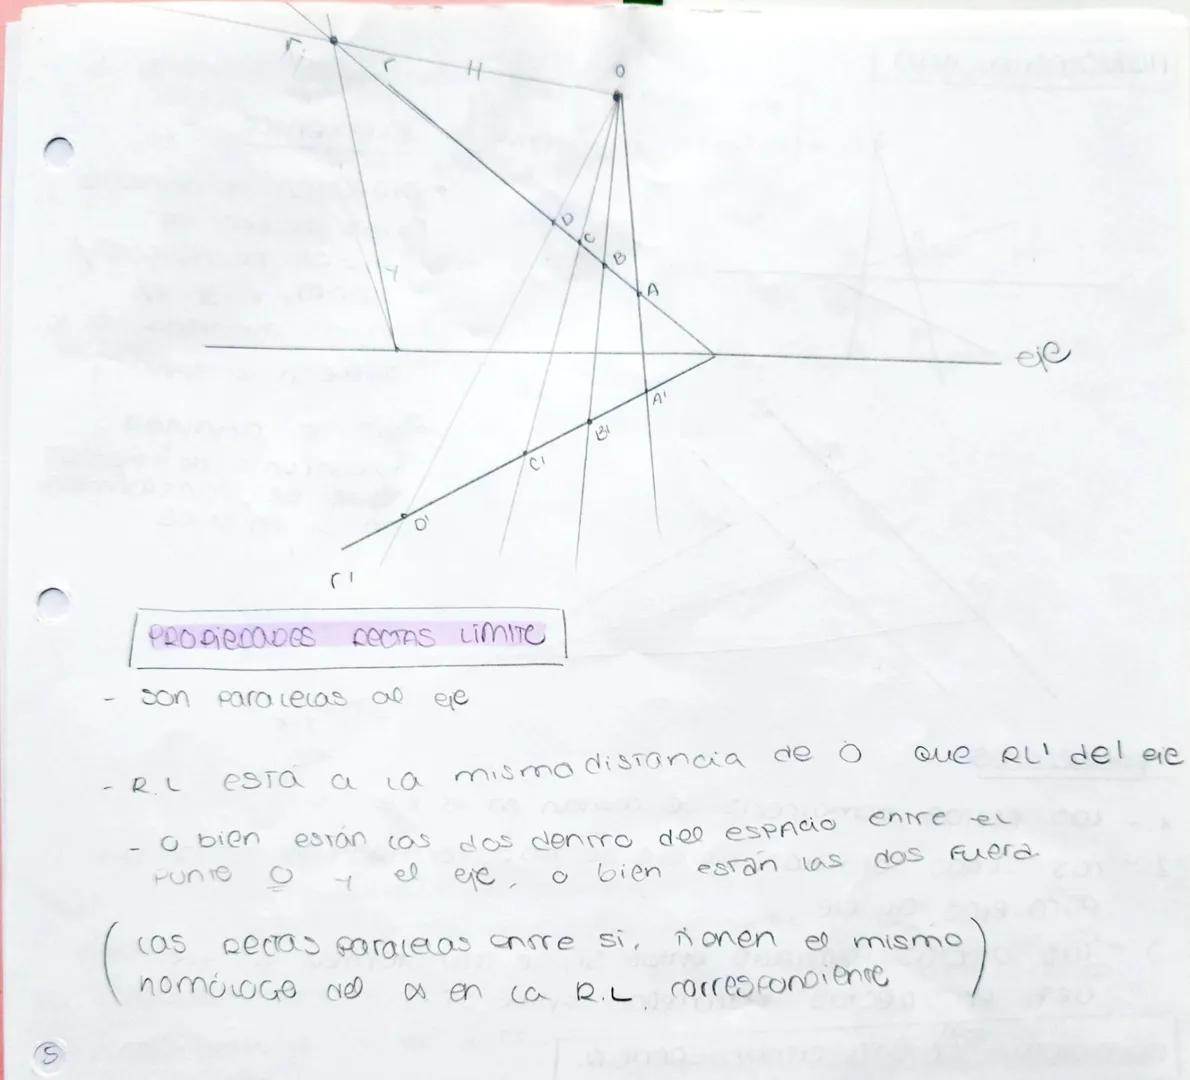 r
H
O
D
C
B
A
eje
A'
B'
C'
D'
r'
PROPIEDADES RECTAS LÍMITE
- son paralelas al eje
- R.L está a la misma distancia de O que RL' del eje
- o bien están las dos dentro del espacio entre el
punto O y el eje, o bien están las dos fuera
(las rectas paralelas entre sí, tienen el mismo
homólogo del ∞ en la R.L correspondiente)
5